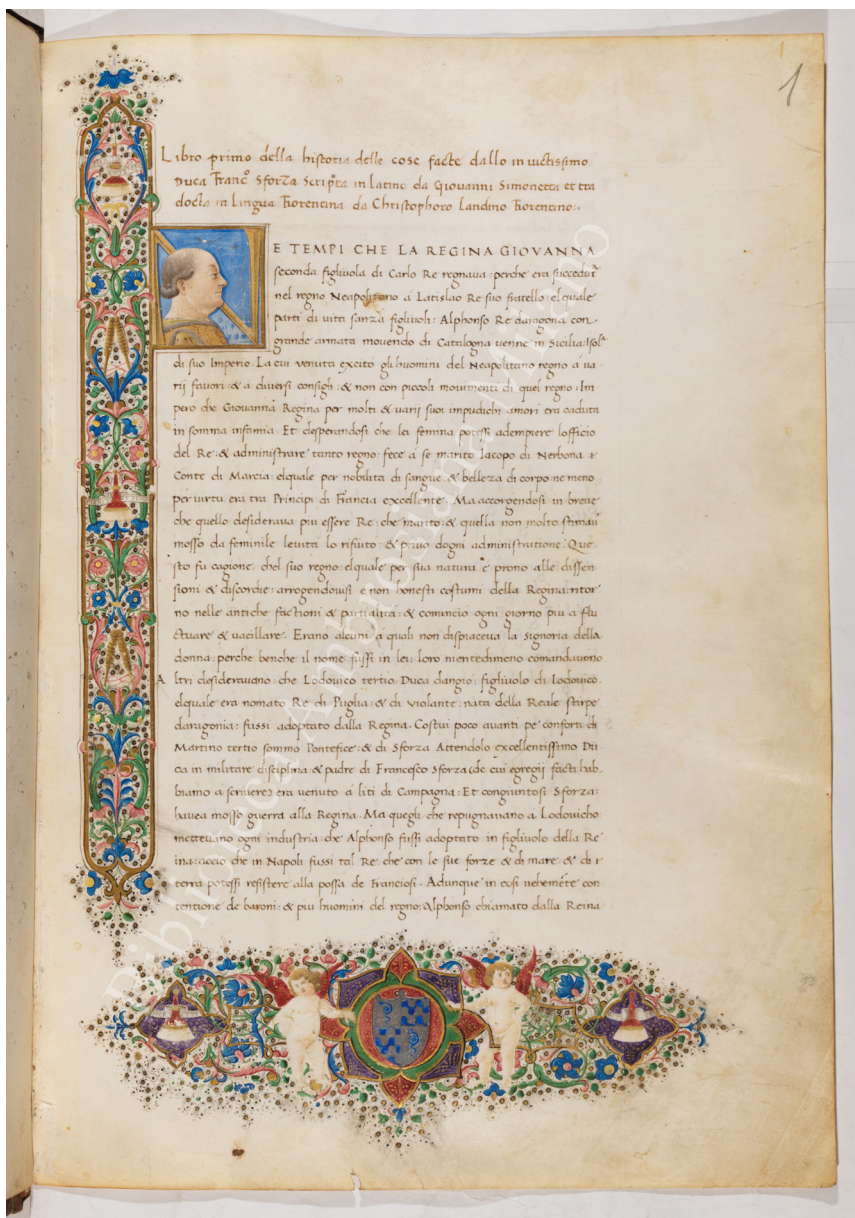 1
Libro primo della historia delle cose facte dallo invictissimo
Duca Franc° Sforza Scripta in latino da Giovanni Simonetta et tra
docta in Lingua Fiorentina da Christophoro Landino Fiorentino:.
N E TEMPI CHE LA REGINA GIOVANNA
seconda figliuola di Carlo Re regnaua: perche era succeduta
nel regno Neapolitano a Latislao Re suo fratello: elquale
parti di vita sanza figliuoli: Alphonso Re daragona con
grande armata mouendo di Catalogna venne in Sicilia Isola
di suo Imperio. La cui venuta excito gli huomini del Neapolitano regno a va
rij fauori: & a diuersi consigli: & non con piccoli mouimenti di quel regno: Im
pero che Giouanna Regina per molti & varij suoi impudichi amori era caduta
in somma infamia. Et desperandosi che lei femina potessi adempiere lofficio
del Re: & administrare tanto regno: fece a se marito Iacopo di Nerbona &
Conte di Marcia: elquale per nobilita di sangue: & belleza di corpo: ne meno
per virtu era tra Principi di Francia excellente. Ma accorgendosi in breue
che quello desideraua piu essere Re: che marito: & quella non molto stimaua
mosso da feminile leuita lo rifiuto: & priuo dogni administratione. Que
sto fu cagione: chel suo regno: elquale per sua natura e prono alle dissen
sioni & discordie: arrogendouisi e non honesti costumi della Regina: ritor
no nelle antiche factioni & partialita: & comincio ogni giorno piu a flu
ctuare & vacillare. Erano alcuni a quali non dispiaceua la signoria della
donna: perche benche il nome fussi in lei: loro nientedimeno comandauono
Altri desiderauano: che Lodouico tertio Duca dangio: figliuolo di Lodouico.
elquale era nomato Re di Puglia: & di Violante: nata della Reale stirpe
daragonia: fussi adoptato dalla Regina. Costui poco auanti pe conforti di
Martino tertio sommo Pontefice: & di Sforza Attendolo excellentissimo Du
ca in militare disciplina & padre di Francesco Sforza (de cui egregij facti hab
biamo a scriuere) era venuto a liti di Campagna: Et congiuntosi Sforza:
hauea mosso guerra alla Regina. Ma quegli che repugnauano a Lodouicho
metteuano ogni industria: che Alphonso fussi adoptato in figliuolo della Re
ina: accio che in Napoli fussi tal Re: che con le sue forze & di mare: & di
terra potessi resistere alla possa de Franciosi. Adunque in cosi vehemete con
tentione de baroni: & piu huomini del regno: Alphonso chiamato dalla Reina
Biblioteca Ambrosiana Milano